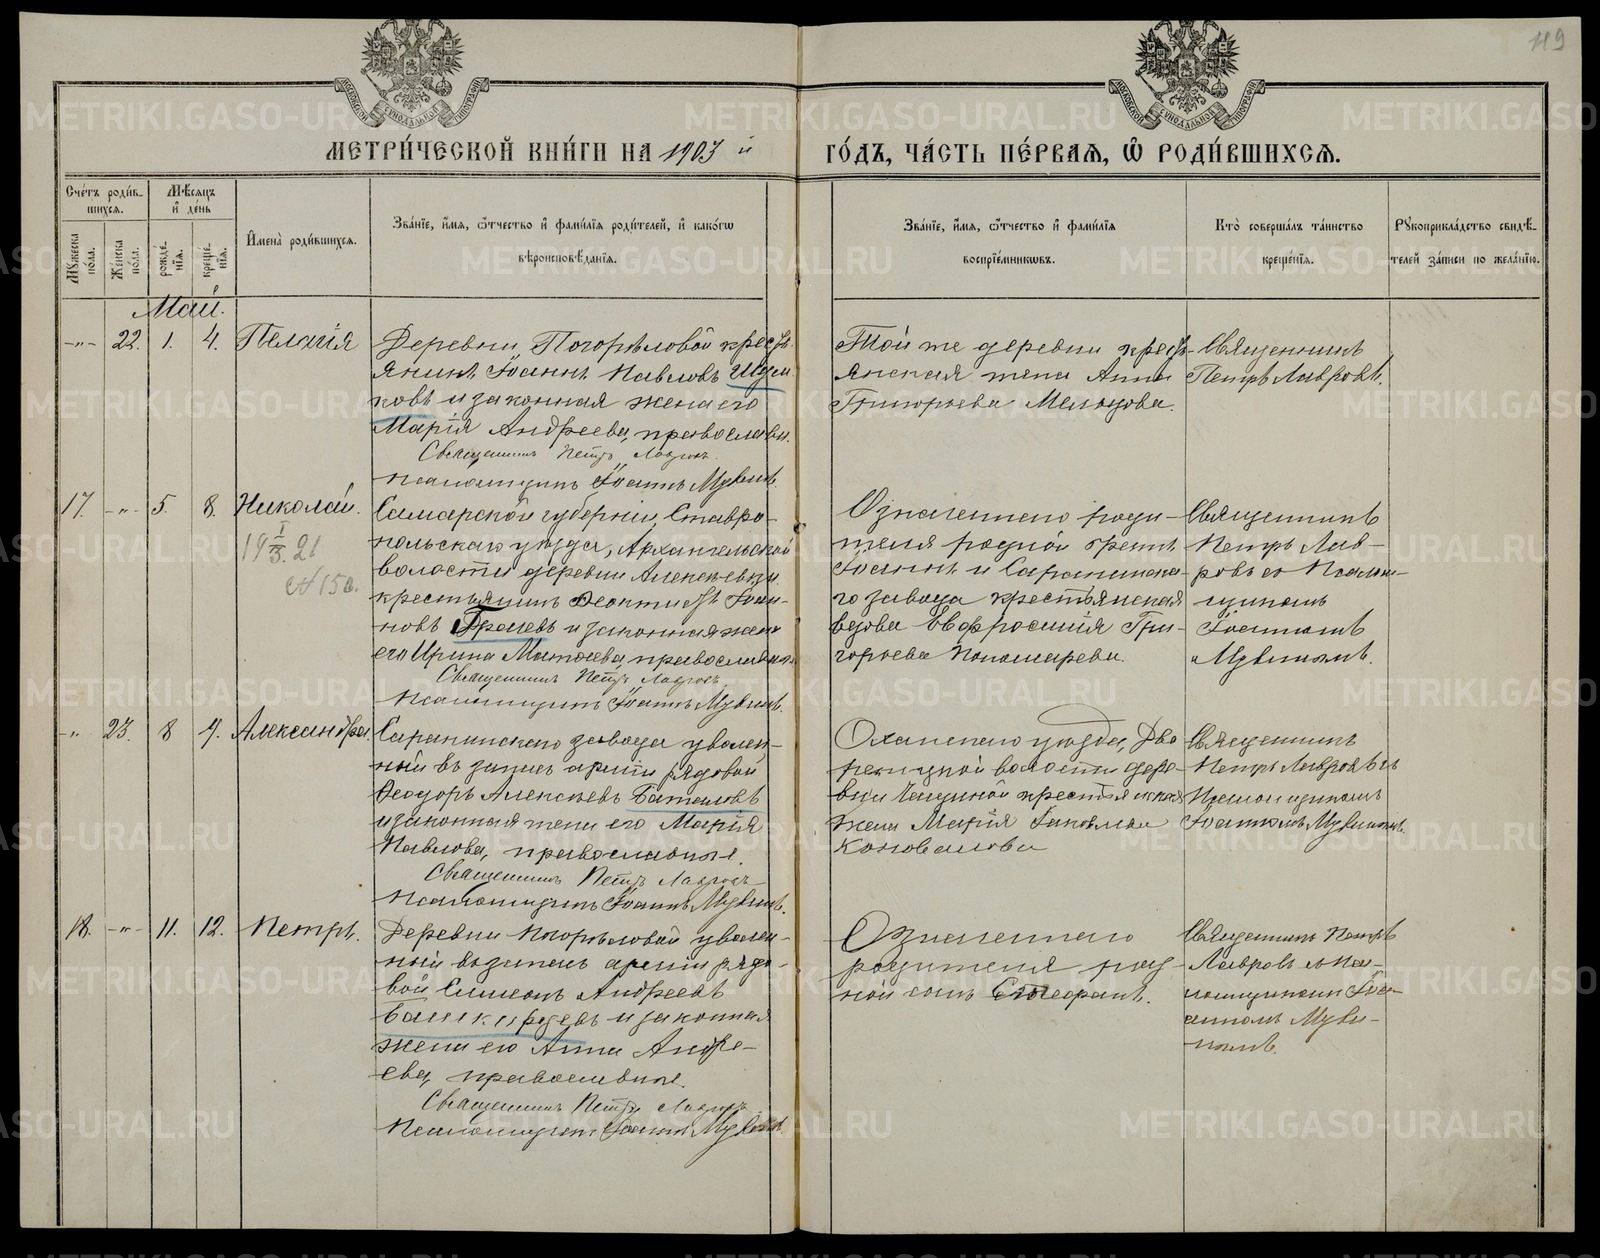 119
МОСКОВСКОЙ СѴНОДАЛЬНОЙ ТИПОГРАФІИ
МОСКОВСКОЙ СѴНОДАЛЬНОЙ ТИПОГРАФІИ
МЕТРИ́ЧЕСКОЙ КНИ́ГИ НА 1903 й
ГО́ДЪ, ЧА́СТЬ ПЕ́РВАѦ, Ѡ РОДИ́ВШИХСѦ.
Сче́тъ роди́в-
шихся.
Мѣ́сяцъ
и де́нь
Му́жеска
по́ла.
Же́нска
по́ла.
рожде́-
нія.
креще́-
нія.
Имена̀ роди́вшихся.
Зва́ніе, и́мя, ѻ҆́тчество и фами́лія роди́телей, и како́гѡ
вѣроисповѣ́данія.
Зва́ніе, и́мя, ѻ҆́тчество и фами́лія
воспріе́мниковъ.
Кто̀ соверша́лъ та́инство
креще́нія.
Рукоприкла́дство свидѣ́-
телей за́писи по жела́нію.
Май.
-"- 22. 1. 4. Пелагія
Деревни Погорѣловой крест-
янинъ Іоаннъ Павловъ
ковъ и законная жена его
Марія Андреева, православн.
Священникъ Петръ Лавровъ.
Псаломщикъ Іоаннъ
Той же деревни крест-
янская жена Анна
Григорьева
Священникъ
Петръ Лавровъ.
17. -"- 5. 8. Николай.
19 I/IX 21
№ 150.
Самарской губерніи, Ставро-
польскаго уѣзда, Архангельской
волости деревни Алексѣевки
крестьянинъ Ѳеоктистъ Іоан-
новъ Грачевъ и законная жена
его Ирина Матѳеева, православные
Священникъ Петръ Лавровъ.
Псаломщикъ Іоаннъ
Означеннаго роди-
теля родной братъ
Іоаннъ и Саранинска-
го завода крестьянская
вдова Евфросинія Гри-
горьева Пономарева.
Священникъ
Петръ Лав-
ровъ съ Псалом-
щикомъ
Іоанномъ
-"- 23. 8 9. Александра
Саранинскаго завода уволен-
ный въ запасъ арміи рядовой
Ѳеодоръ Алексѣевъ Баталовъ
и законная жена его Марія
Павлова, православные.
Священникъ Петръ Лавровъ
Псаломщикъ Іоаннъ
Оханскаго уѣзда, Дво
рецкой волости дере-
вни крестьянская
жена Марія Іаковлева
Коновалова
Священникъ
Петръ Лавровъ съ
Псаломщикомъ
Іоанномъ
18. -"- 11. 12. Петръ.
Деревни Погорѣловой уволен-
ный въ запасъ арміи рядо-
вой Симеонъ Андреевъ
Башкирцевъ и законная
жена его Анна Андре-
ева, православные.
Священникъ Петръ Лавровъ
Псаломщикъ Іоаннъ
Означеннаго
родителя род-
ной сынъ
Священникъ Петръ
Лавровъ съ Пса-
ломщикомъ Іоа-
нномъ
METRIKI.GASO-URAL.RU